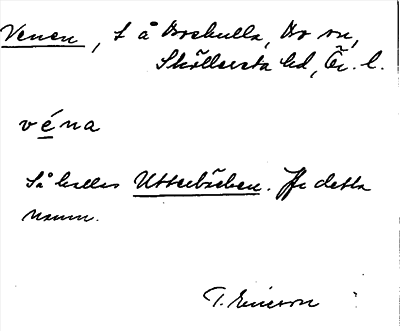 Venen, t å Brekulla, Bo sn,
Sköllersta hd, Ör. l.
véna
Så kallas Utterbäcken. Jfr detta
namn.
T. Ericson